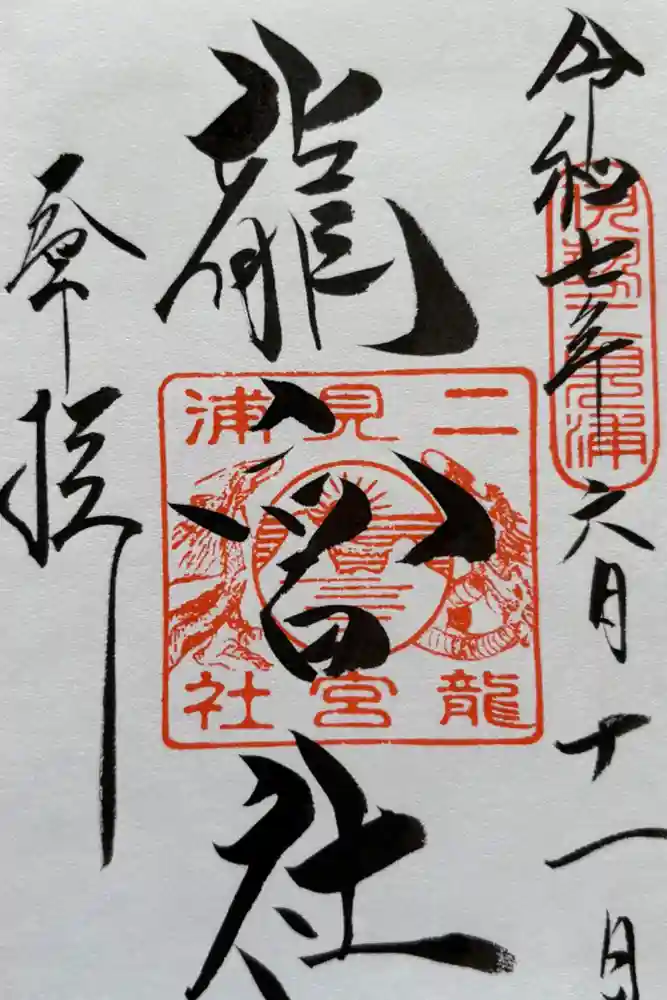 令和七年六月十一日
伊勢二見浦
龍宮社
二見浦
龍宮社
奉拝